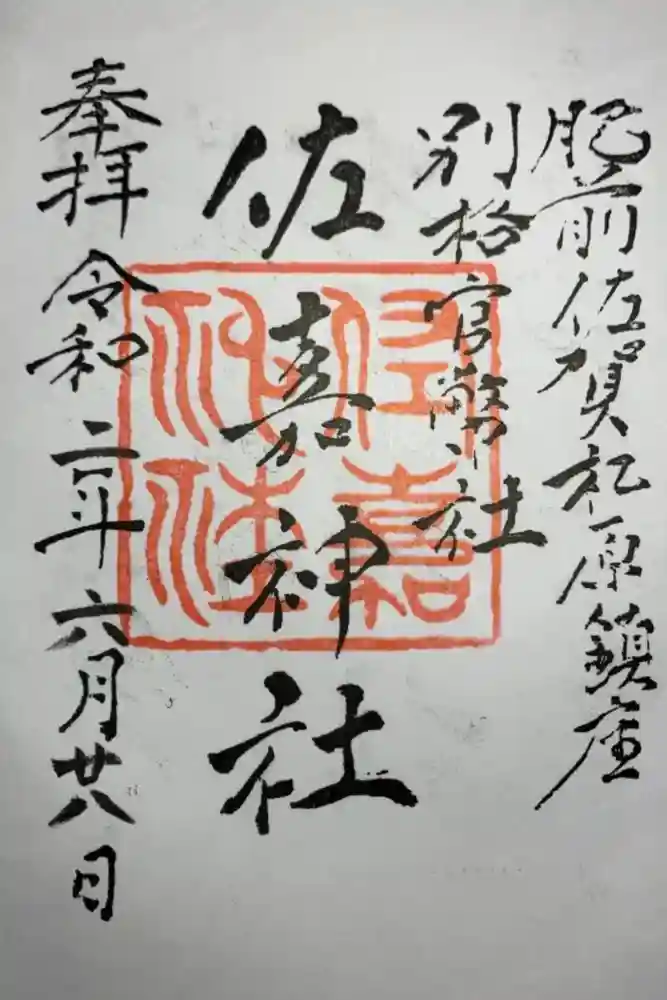 肥前佐賀松原鎮座
別格官幣社
佐嘉神社
佐嘉神社
奉拝 令和二年六月廿八日